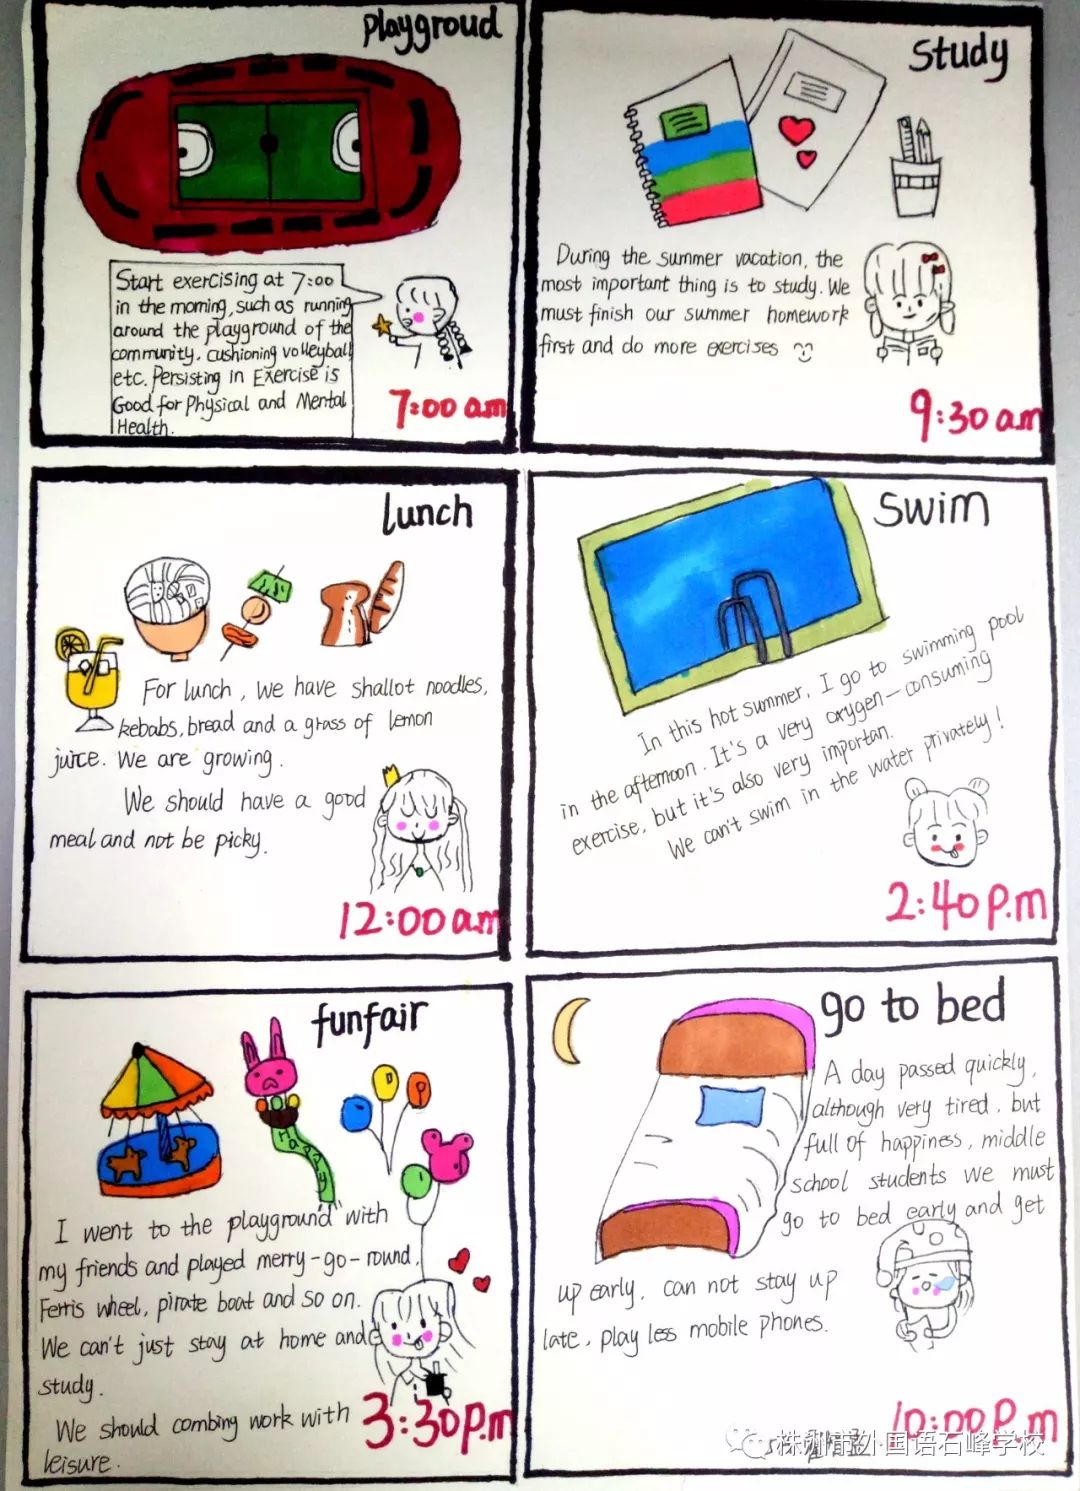 playgroud
Start exercising at 7:00
in the morning, such as running
around the playground of the
community, cushioning volleyball
etc. Persisting in Exercise is
Good for Physical and Mental
Health.
7:00 am
Study
During the summer vacation, the
most important thing is to study. We
must finish our summer homework
first and do more exercises
9:30 am
lunch
For lunch, we have shallot noodles,
kebabs, bread and a grass of lemon
juice. We are growing.
We should have a good
meal and not be picky.
12:00 am
swim
In this hot summer, I go to swimming pool
in the afternoon. It's a very oxygen-consuming
exercise, but it's also very importan.
We can't swim in the water privately!
2:40 P.m
funfair
Happy
I went to the playground with
my friends and played merry-go-round,
Ferris wheel, pirate boat and so on.
We can't just stay at home and
study.
We should combing work with
leisure.
3:30 P.m
go to bed
A day passed quickly,
although very tired, but
full of happiness, middle
school students we must
go to bed early and get
up early, can not stay up
late, play less mobile phones.
10:00 P.m
株洲市外国语石峰学校